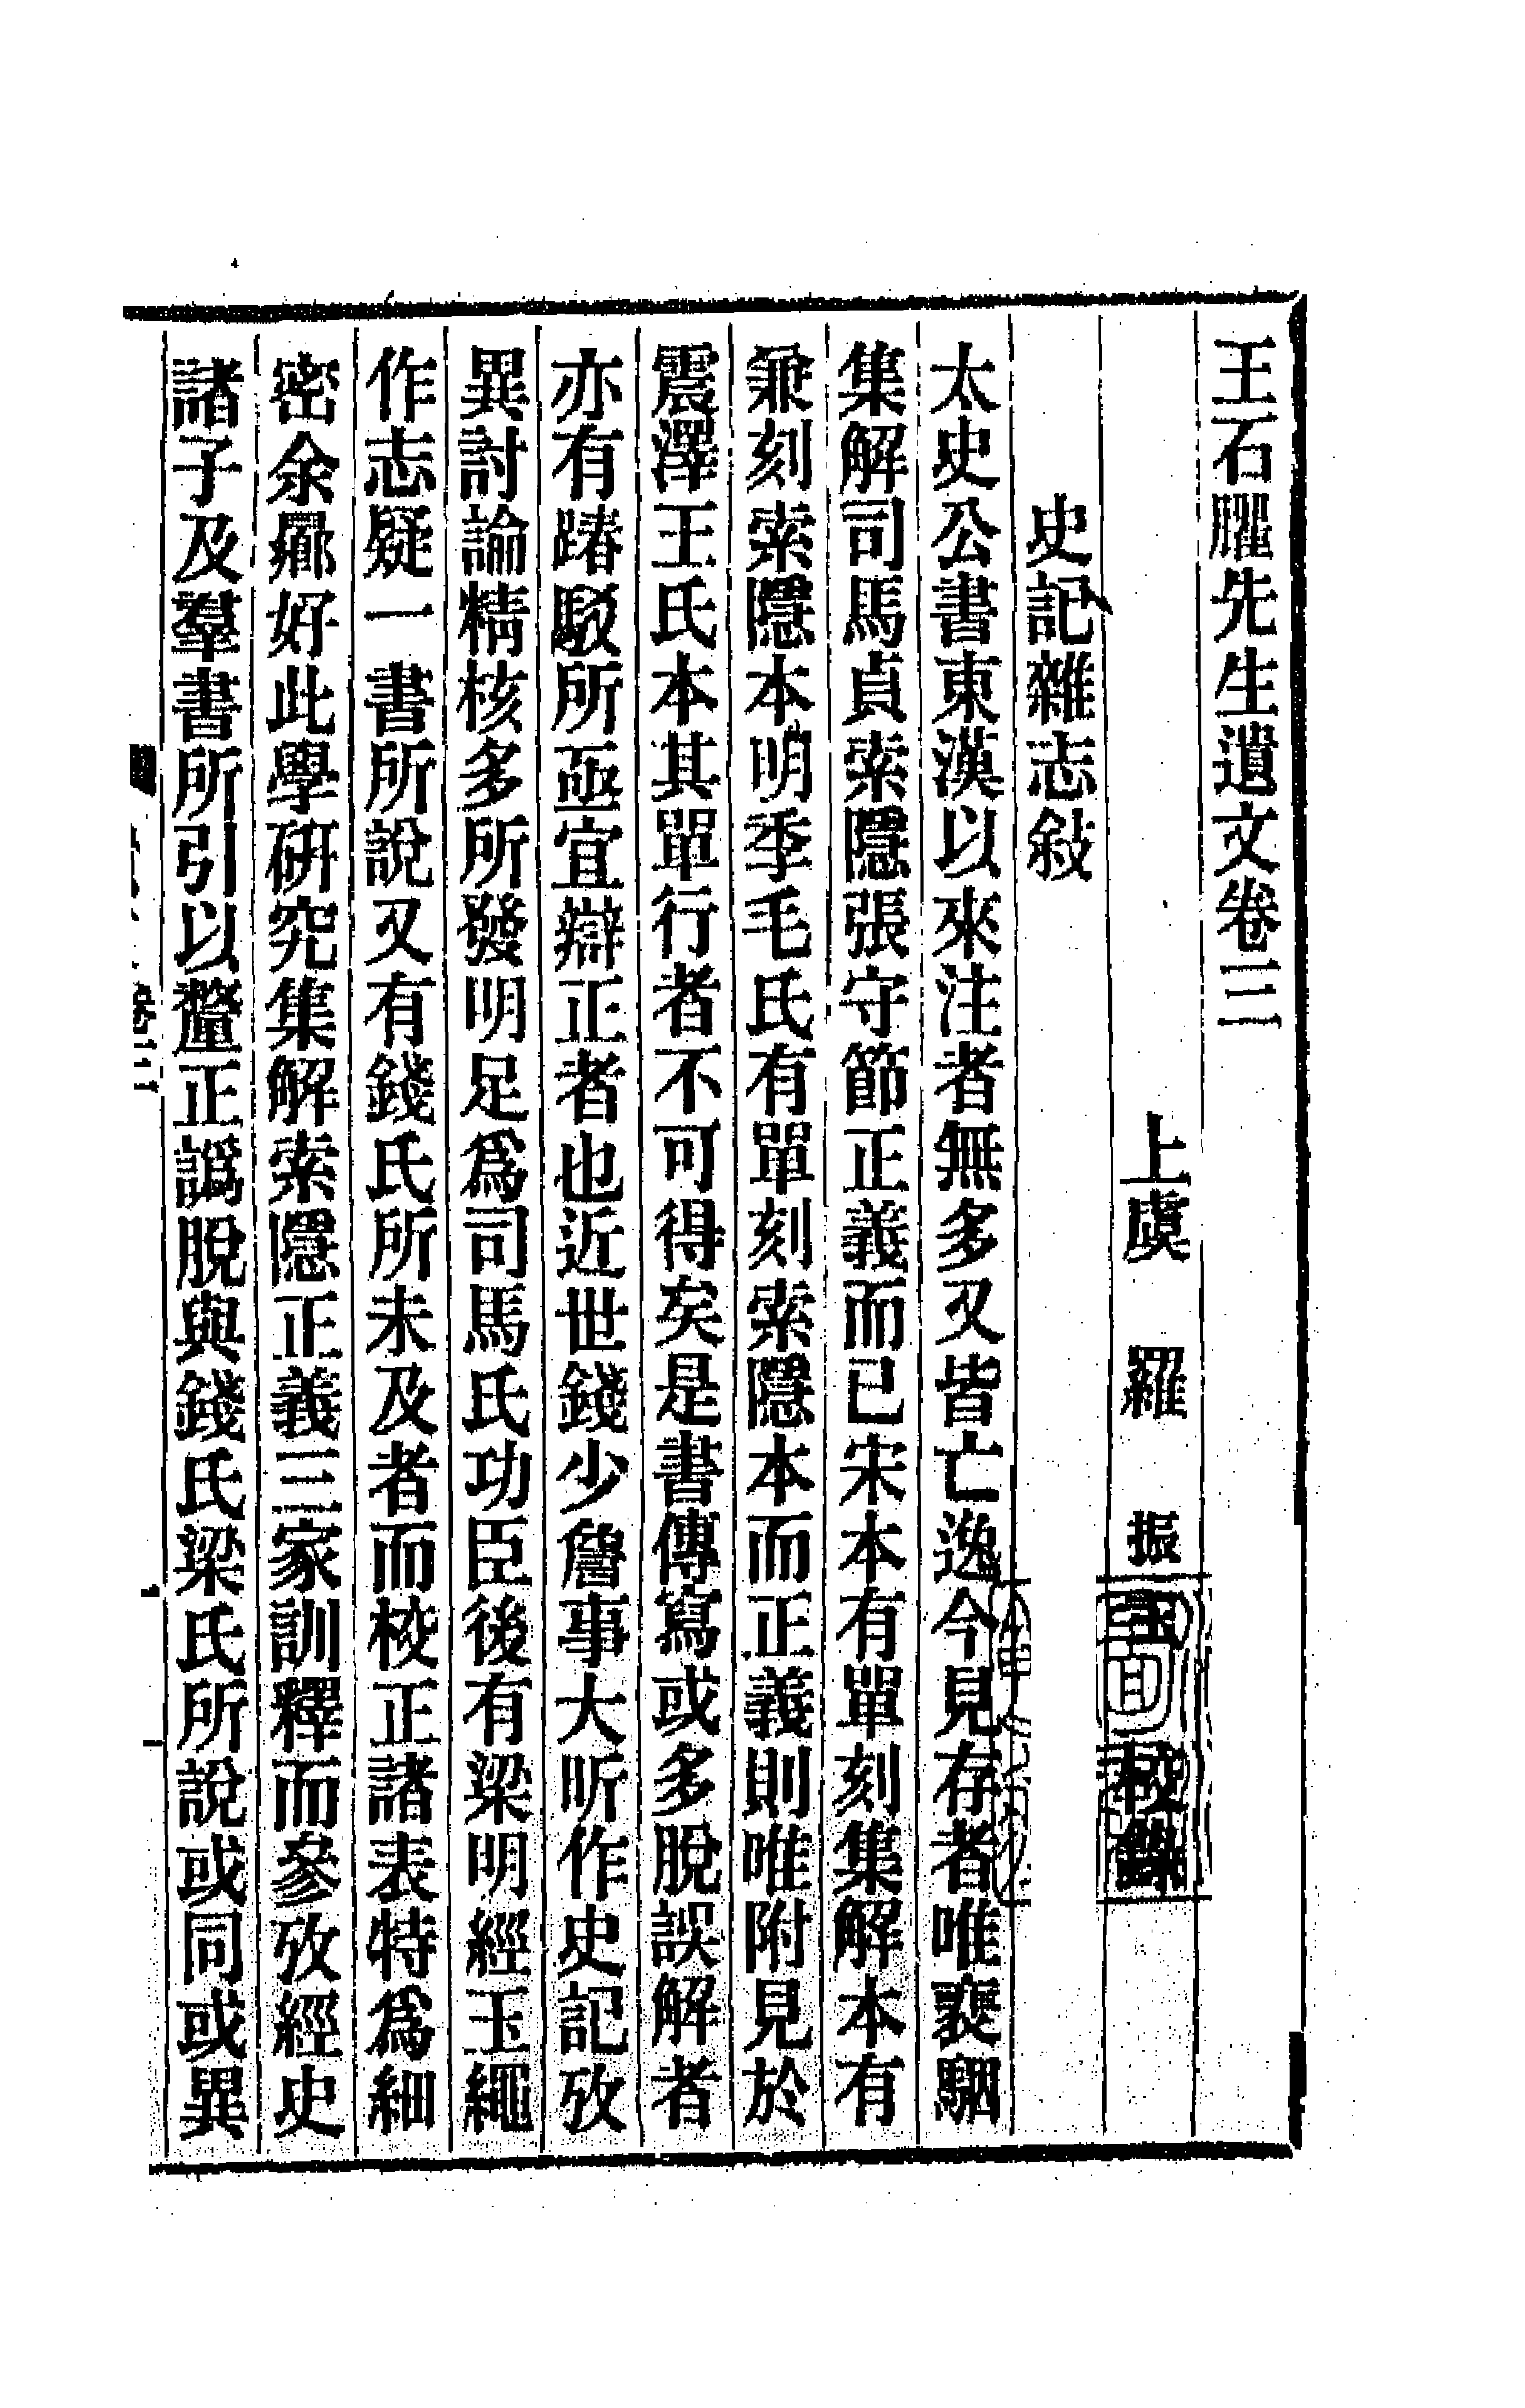 王石臞先生遺文卷三
上虞 羅 振玉 校錄
史記雜志敍
太史公書東漢以來注者無多又皆亡逸今見存者唯裴駰
集解司馬貞索隱張守節正義而已宋本有單刻集解本有
兼刻索隱本明季毛氏有單刻索隱本而正義則唯附見於
震澤王氏本其單行者不可得矣是書傳寫或多脫誤解者
亦有踳駮所亟宜辯正者也近世錢少詹事大昕作史記攷
異討論精核多所發明足爲司馬氏功臣後有梁明經玉繩
作志疑一書所說又有錢氏所未及者而校正諸表特爲細
密余曏好此學硏究集解索隱正義三家訓釋而參攷經史
諸子及羣書所引以釐正譌脫與錢氏梁氏所說或同或異
卷三